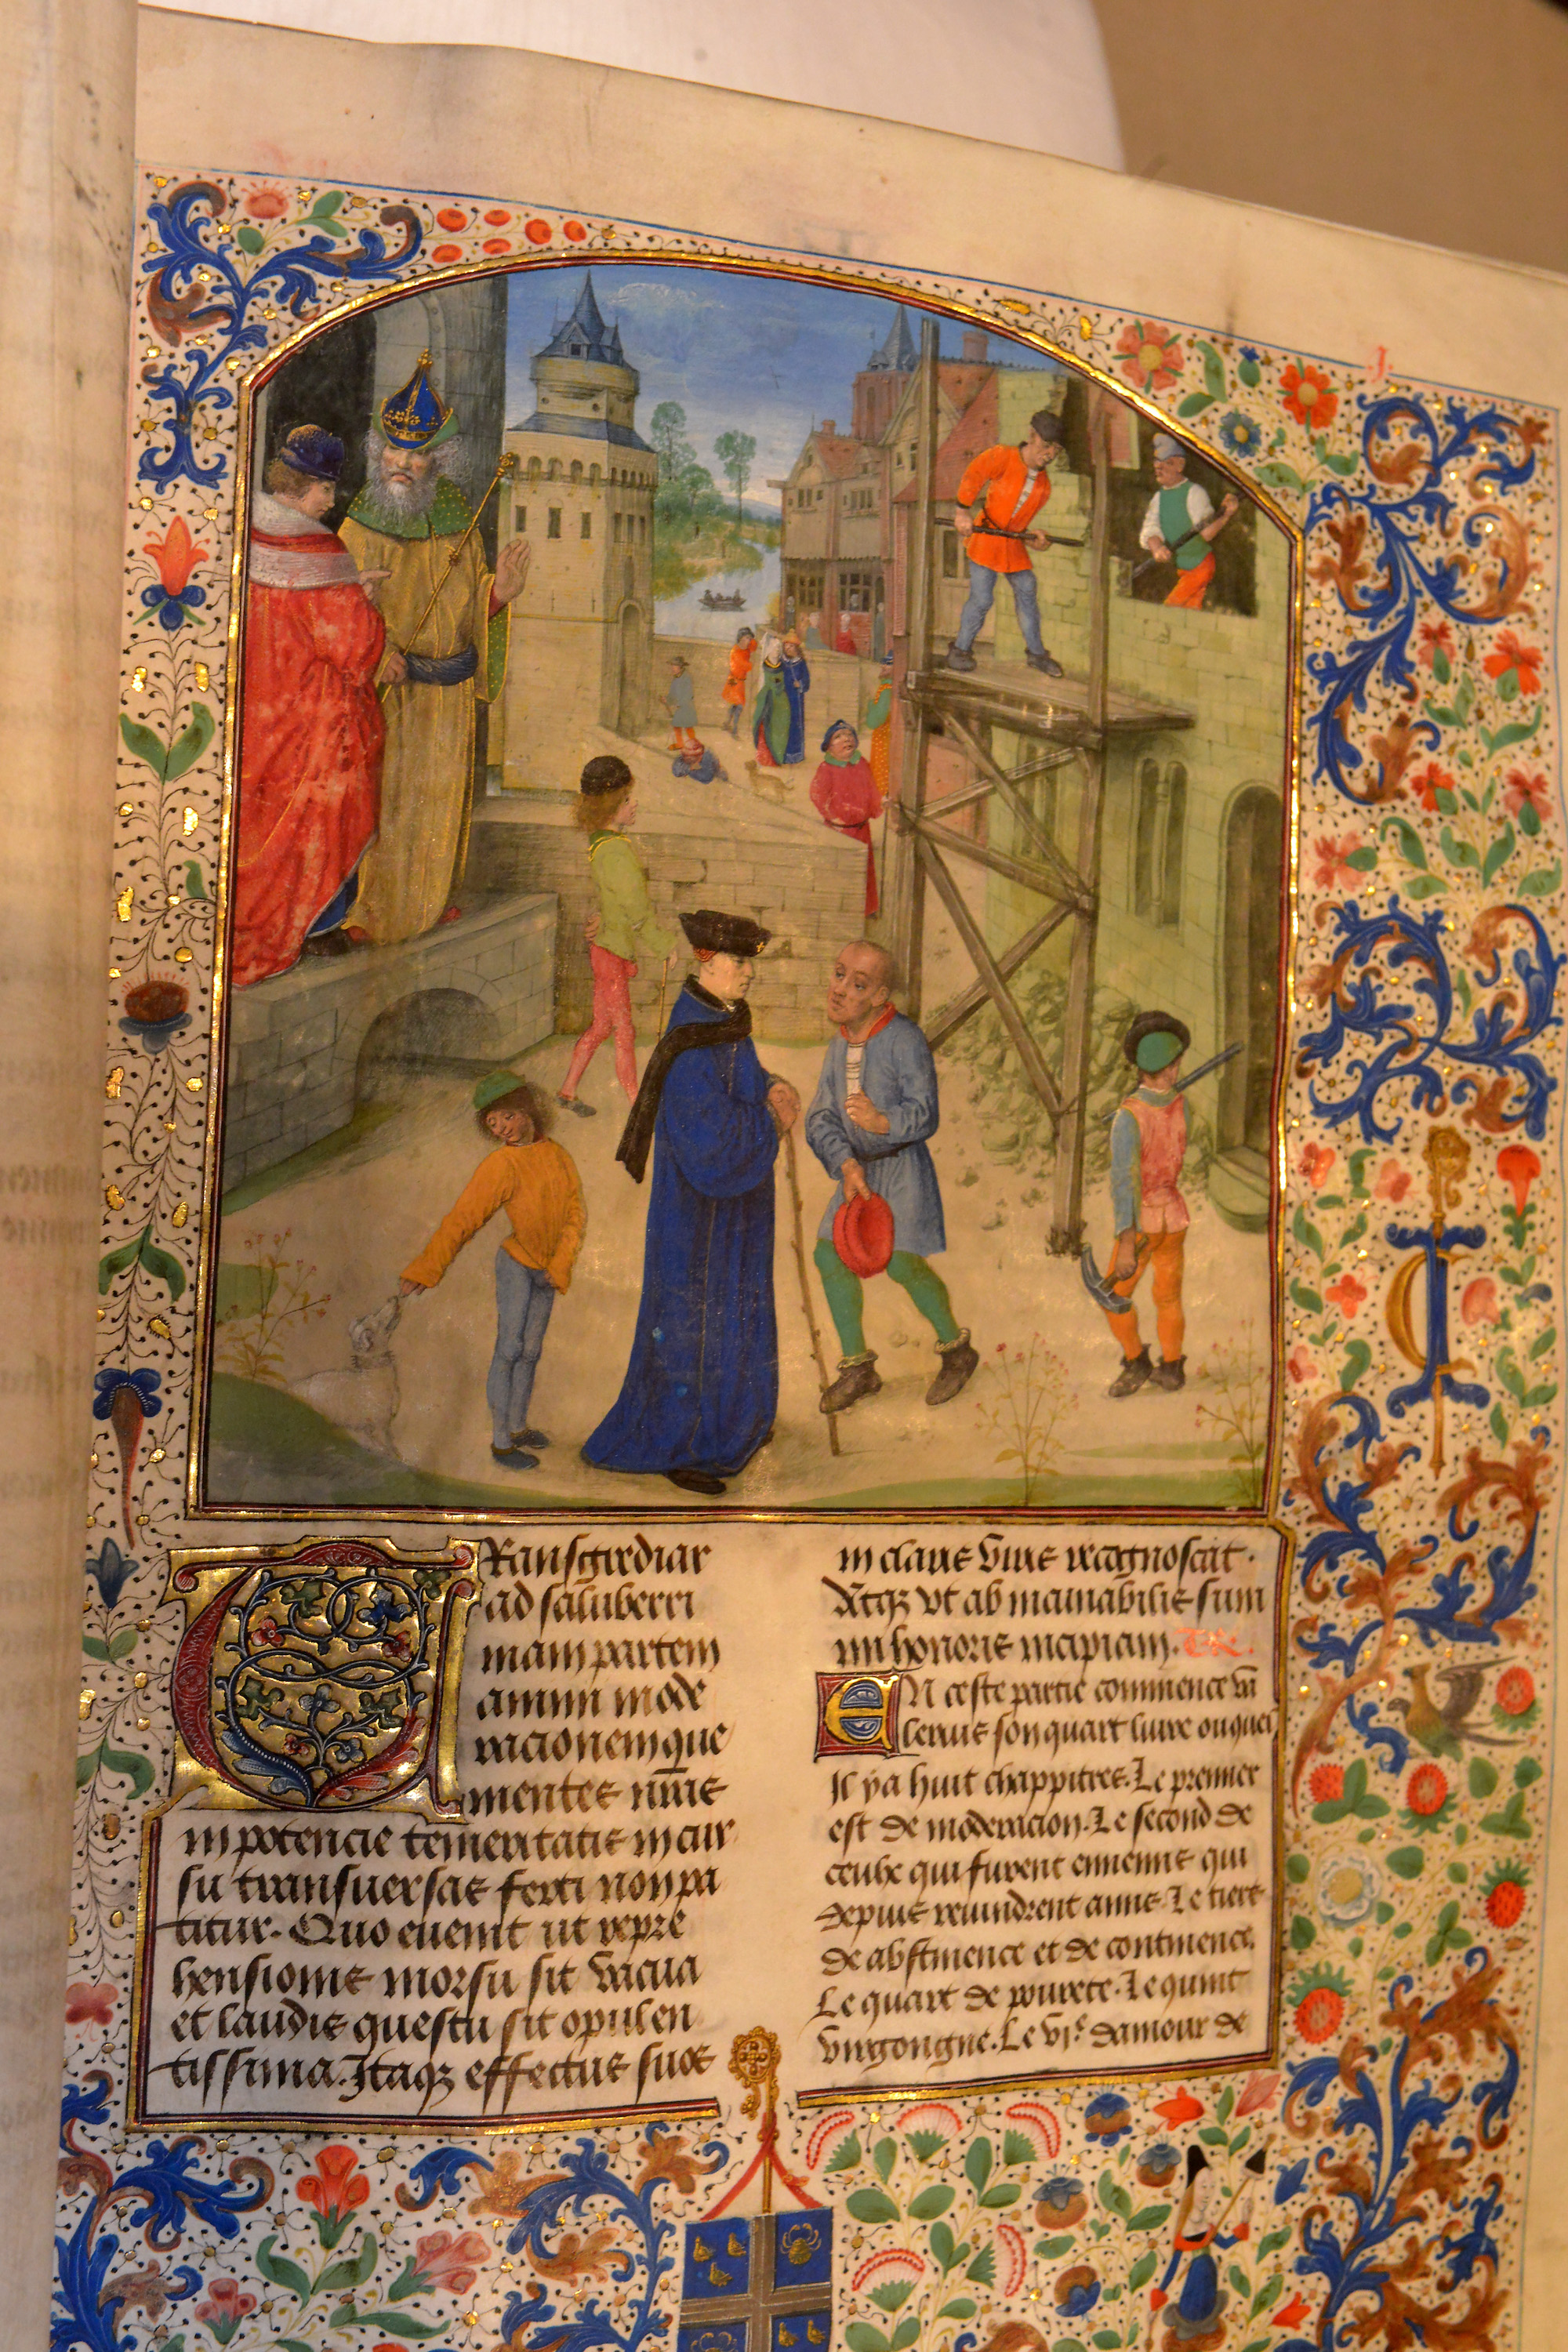 Transgrediar
ad saluberri
mam partem
animi mode
racionemque
mentes nr̅as
inpotencie temeritatis incur
su transuersas ferri non pa
titur. Quo euenit ut repre
hensionis morsu sit vacua
et laudis questu sit opulen
tissima. Itaqꝫ effectus suos
in claris viris recognoscat.
Atqꝫ vt ab incunabilis sum
mi honoris incipiam.
En ceste partie commence va
lerius son quart liure ouquel
Il ya huit chappitres. Le premier
est de moderacion. Le second de
ceulx qui furent ennemis qui
depuis reuindrent amis. Le tiers
de abstinence et de continence.
Le quart de pourete. Le quint
virgongne. Le vjᵉ damour de